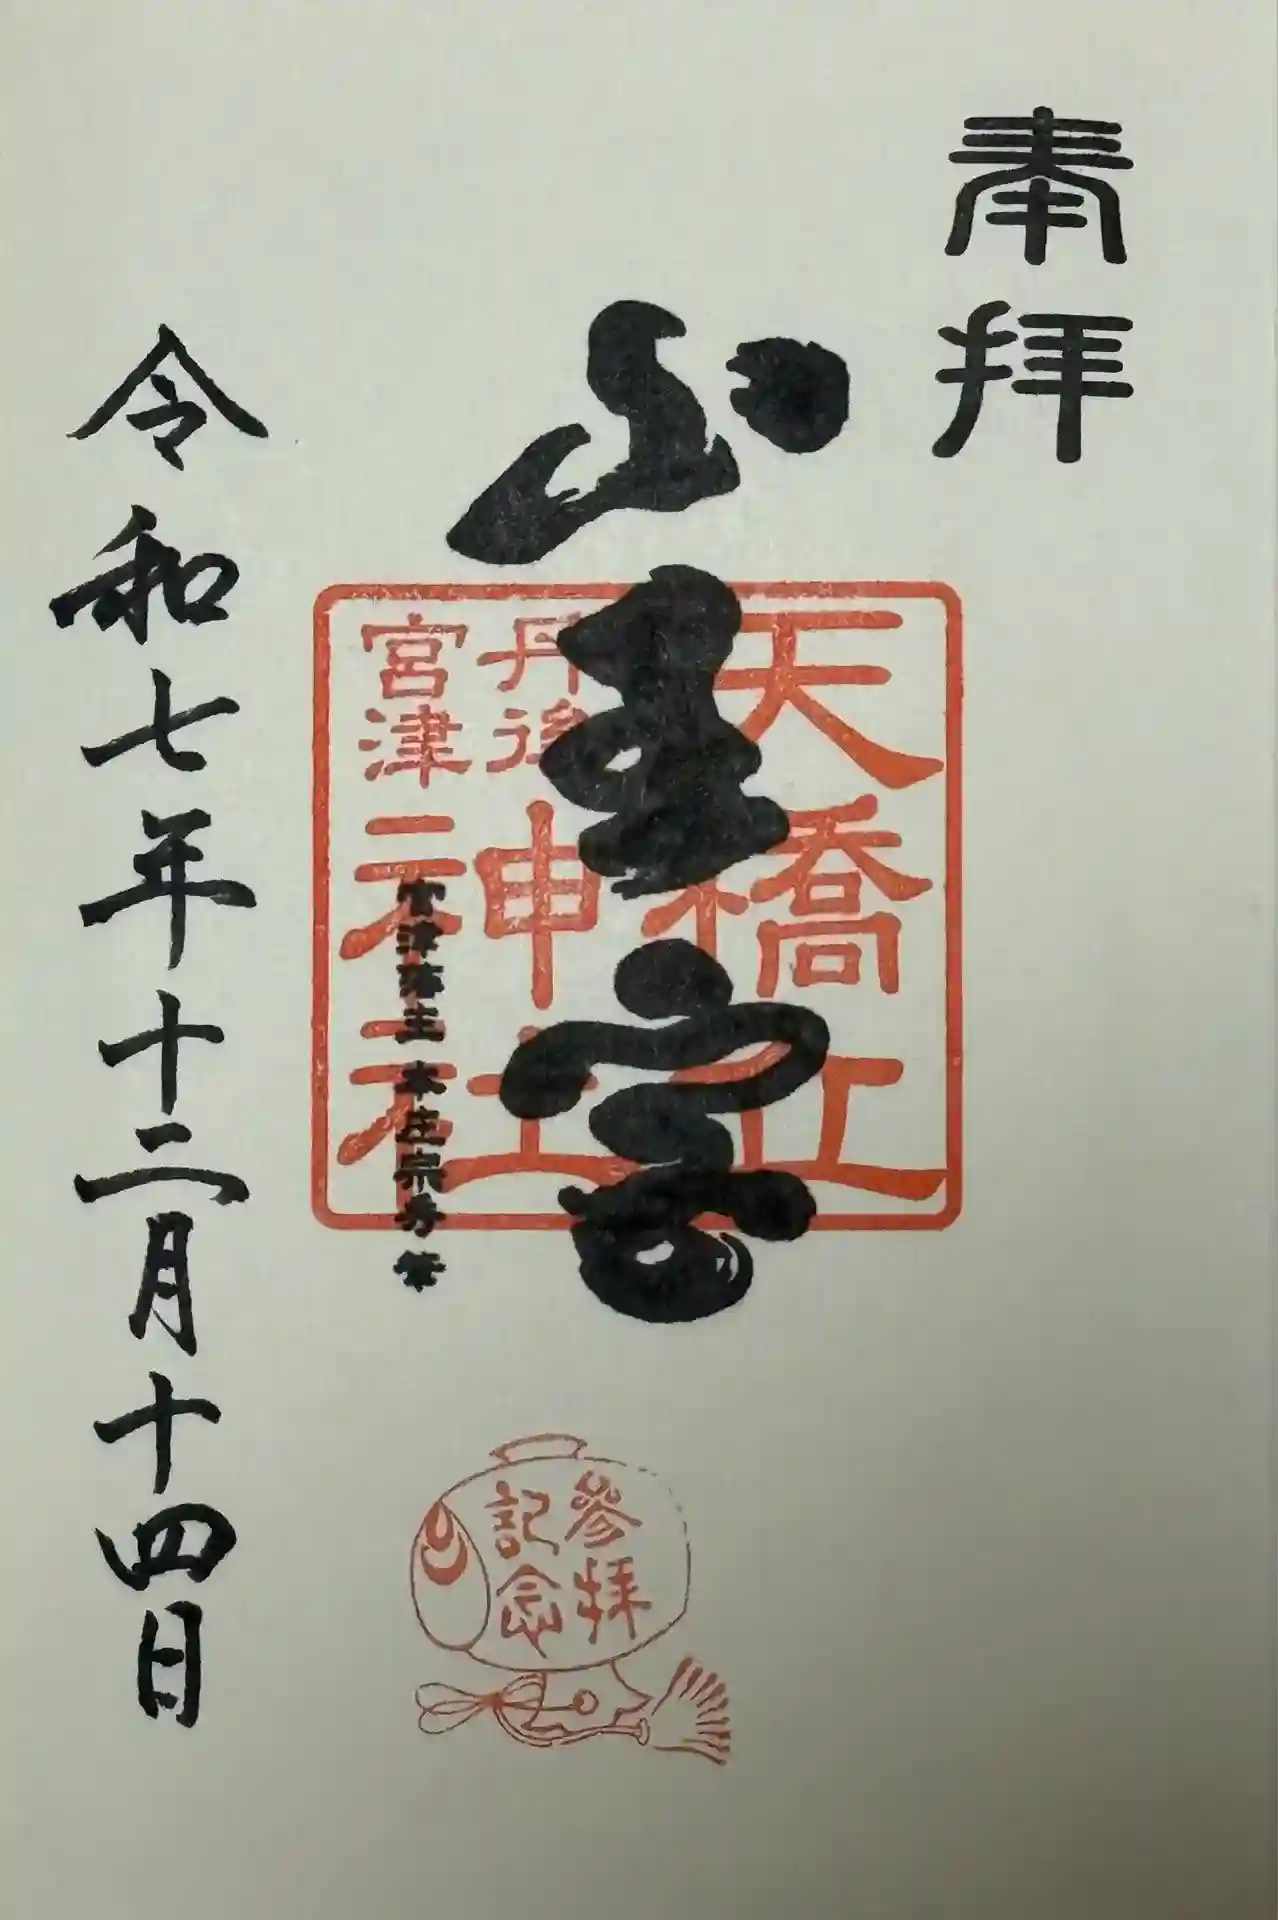 奉拝
山王宮
天橋立
丹後
宮津
神社
宮津藩主 本庄宗秀 筆
令和七年十二月十四日
參拜
記念